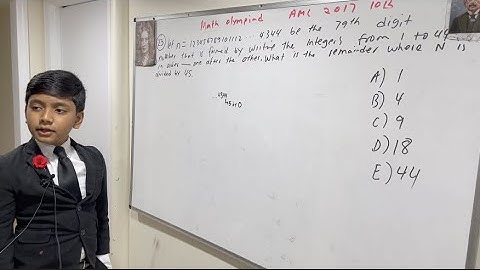 Math olympiad AMC 2017 10th
23) let n=123456789101112 ... 4344 be the 79th digit
number that is formed by writing the integers from 1 to 44
in order — one after the other. What is the remainder where N is
divided by 45.
A) 1
B) 4
C) 9
D) 18
E) 44